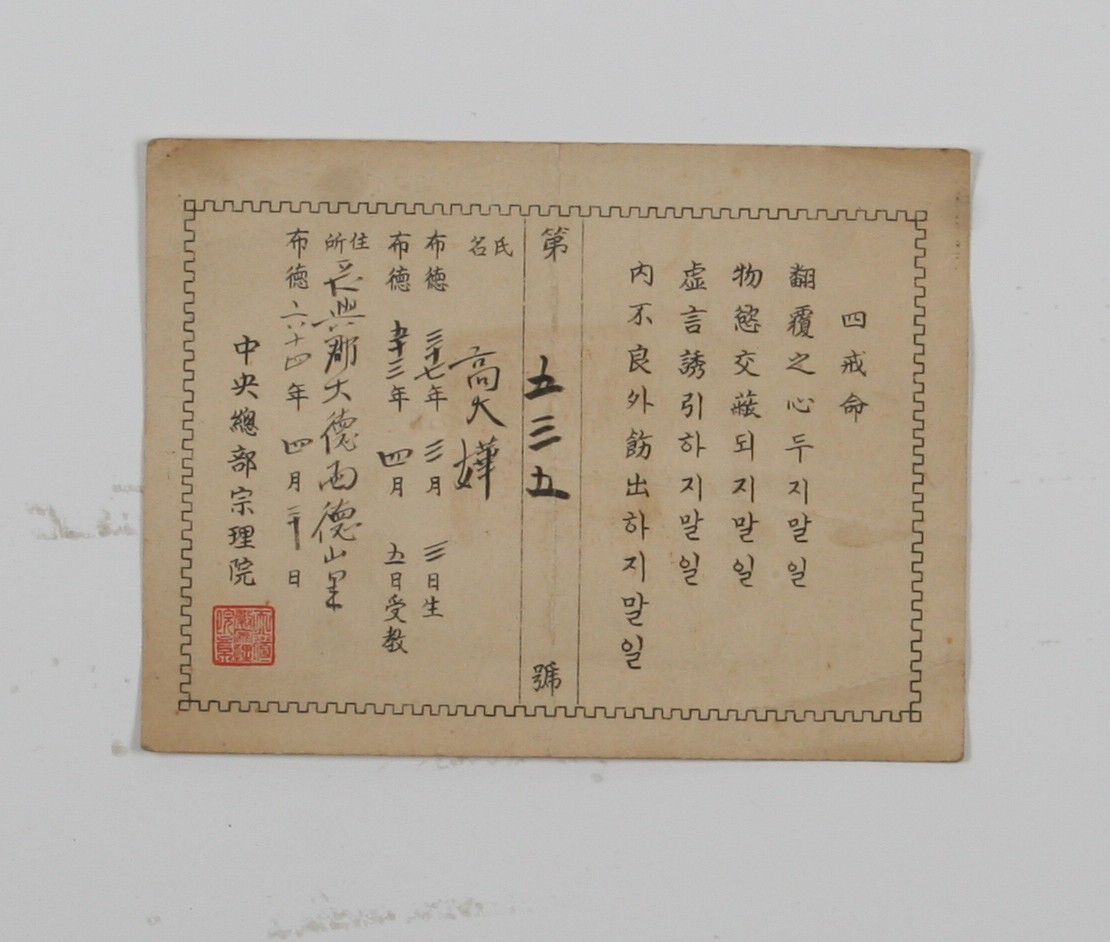 四戒命
翻覆之心두지말일
物慾交蔽되지말일
虛言誘引하지말일
內不良外飾出하지말일
第 五三五 號
氏名 高大嬅
布德 三十七年 三月 三日生
布德 五十三年 四月 五日受教
住所 長興郡大德面德山里
布德六十四年 四月 二十日
中央總部宗理院